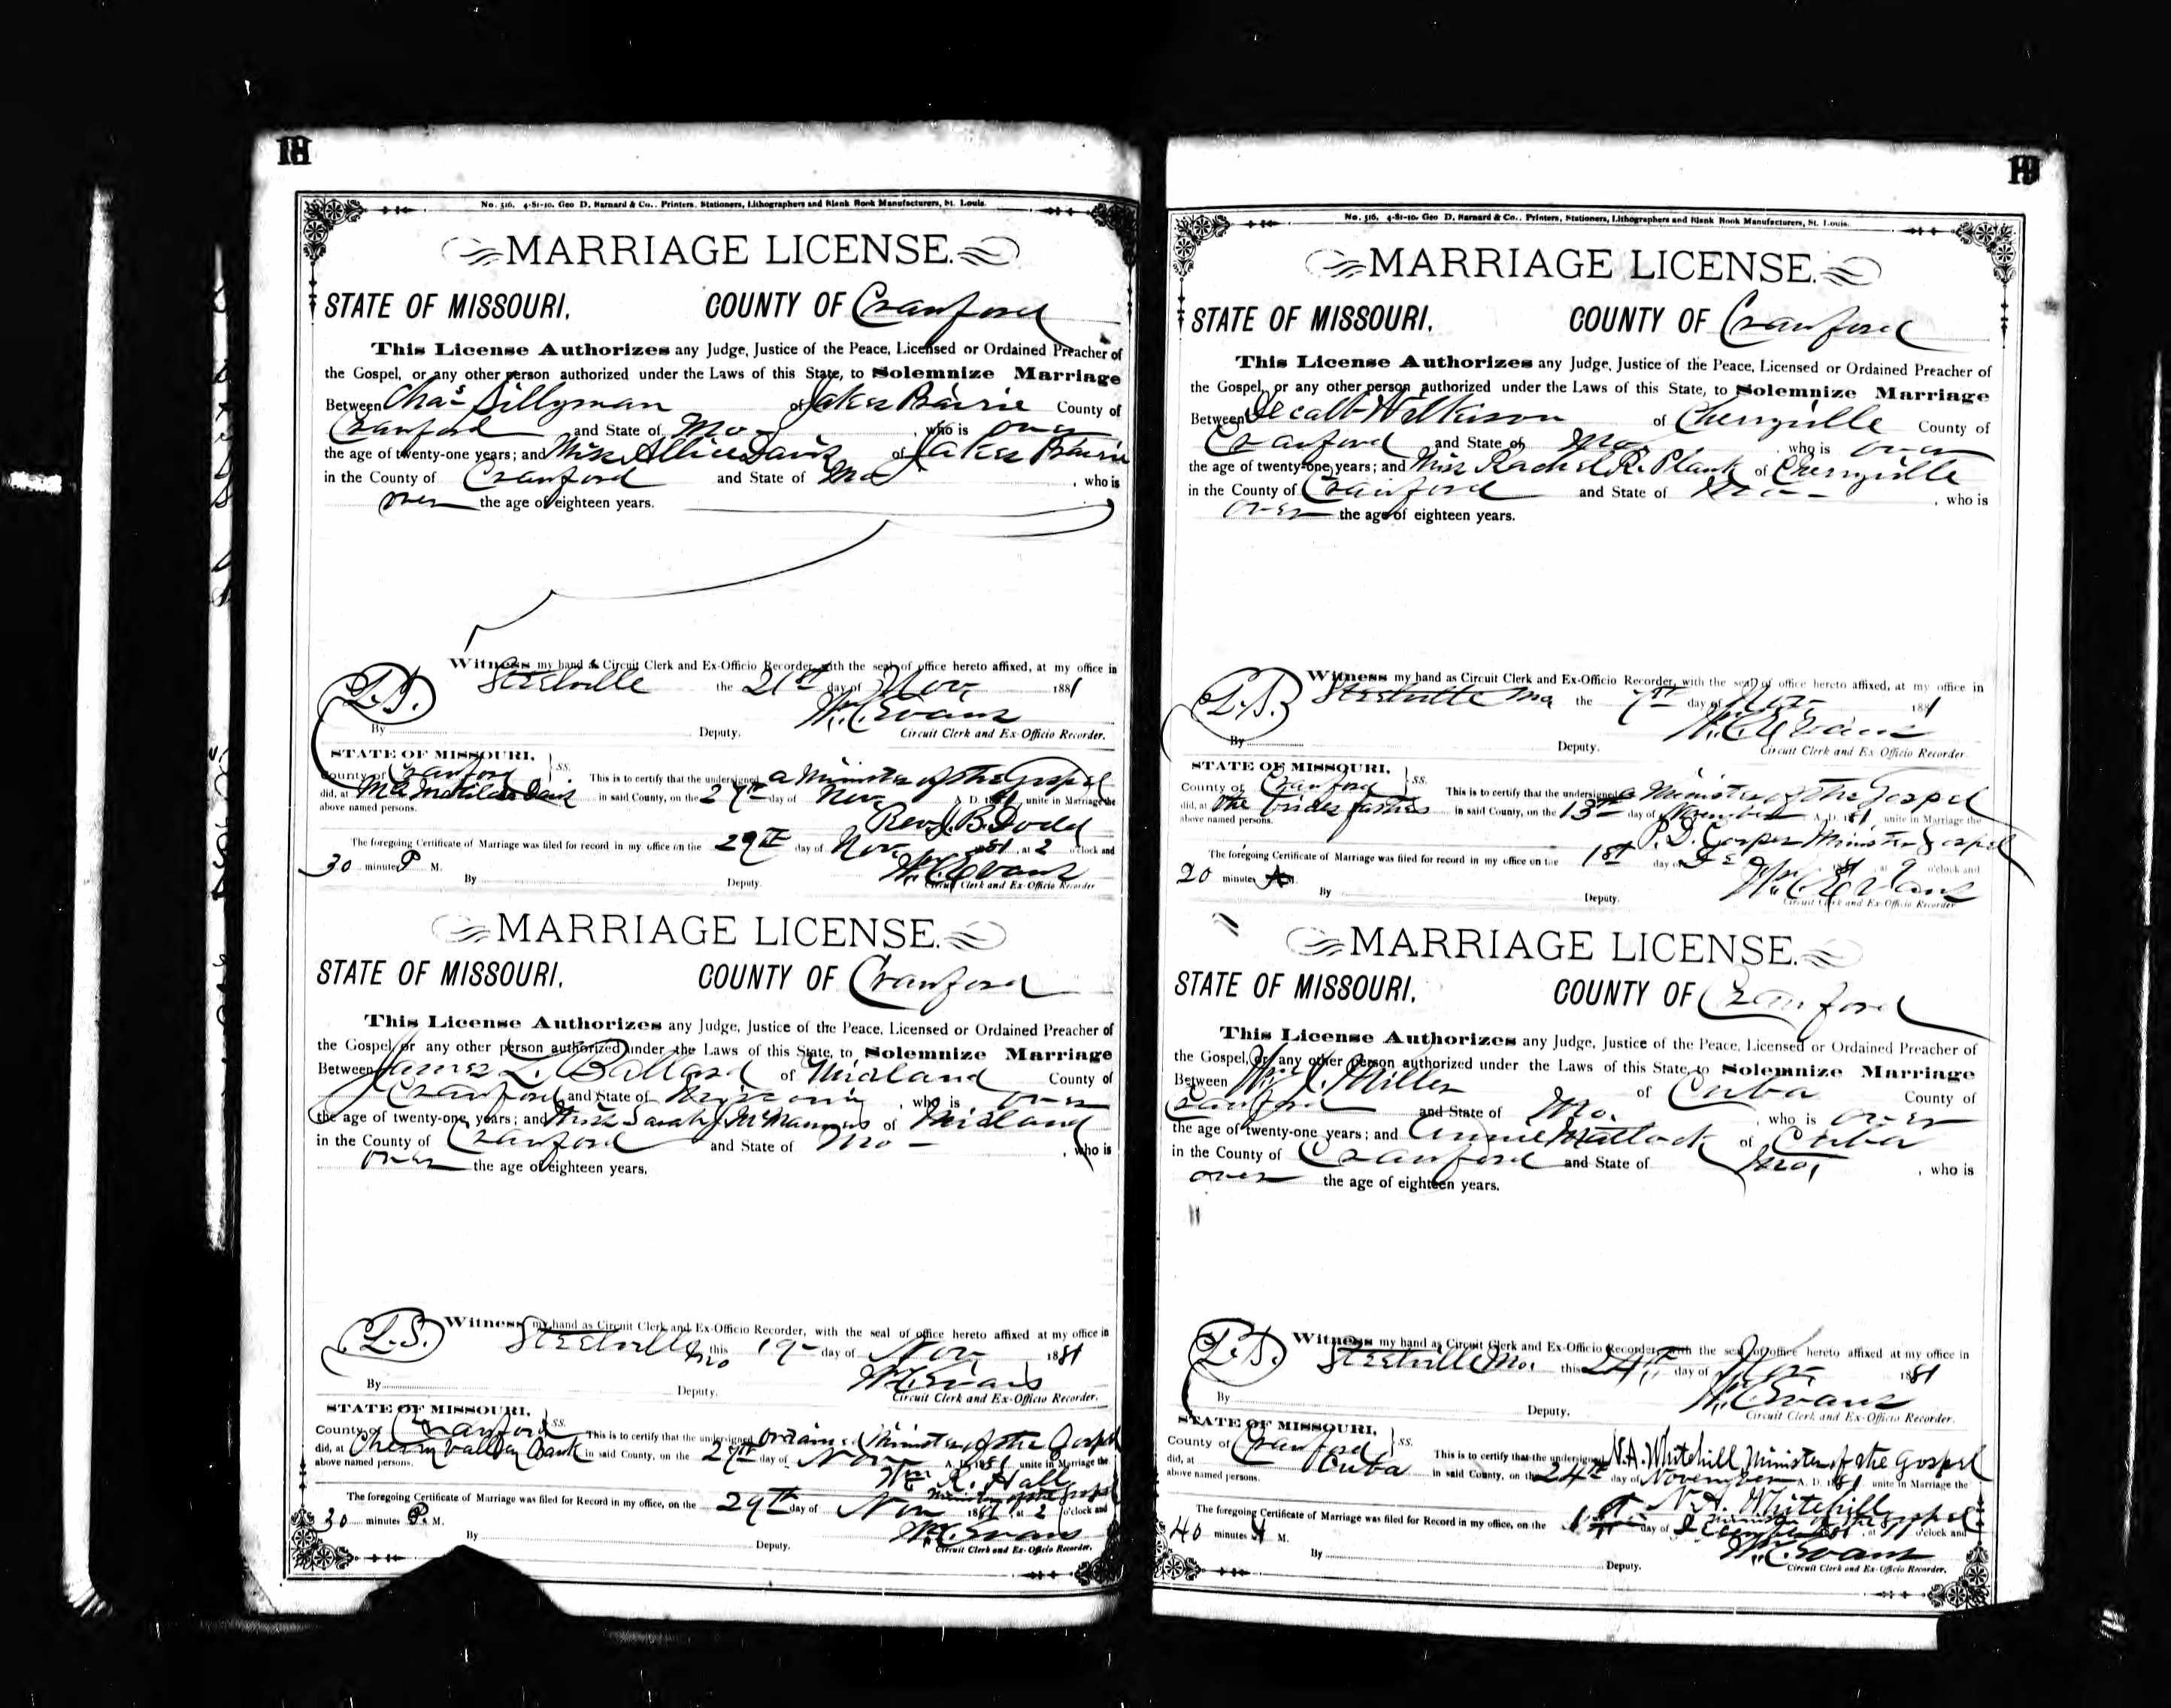 18
No. 316. 4-81-10. Geo D. Barnard & Co., Printers, Stationers, Lithographers and Blank Book Manufacturers, St. Louis.
MARRIAGE LICENSE.
STATE OF MISSOURI, COUNTY OF Crawford
This License Authorizes any Judge, Justice of the Peace, Licensed or Ordained Preacher of
the Gospel, or any other person authorized under the Laws of this State, to Solemnize Marriage
Between Chas Sillyman of Jakes Prairie County of
Crawford and State of Mo- , who is over
the age of twenty-one years; and Miss Allice Davis of Jakes Prairie
in the County of Crawford and State of Mo , who is
over the age of eighteen years.
Witness my hand as Circuit Clerk and Ex-Officio Recorder, with the seal of office hereto affixed, at my office in
L.S. Steelville the 21st day of Nov. 1881
Wm C Evans
By Deputy. Circuit Clerk and Ex-Officio Recorder.
STATE OF MISSOURI,
County of Crawford ss. This is to certify that the undersigned a Minister of the Gospel
did, at Matilda Davis in said County, on the 27th day of Nov. A. D. 1881 unite in Marriage the
above named persons. Rev J. B. Dodd
The foregoing Certificate of Marriage was filed for record in my office on the 29th day of Nov. 1881, at 2 o'clock and
30 minutes P M. Wm C Evans
By Deputy. Circuit Clerk and Ex-Officio Recorder
MARRIAGE LICENSE.
STATE OF MISSOURI, COUNTY OF Crawford
This License Authorizes any Judge, Justice of the Peace, Licensed or Ordained Preacher of
the Gospel, or any other person authorized under the Laws of this State, to Solemnize Marriage
Between James L. Ballard of Midland County of
Crawford and State of Missouri , who is over
the age of twenty-one years; and Miss Sarah J McMannus of Midland
in the County of Crawford and State of Mo- , who is
over the age of eighteen years.
Witness my hand as Circuit Clerk and Ex-Officio Recorder, with the seal of office hereto affixed at my office in
L.S. Steelville Mo this 19- day of Nov 1881
Wm C Evans
By Deputy. Circuit Clerk and Ex-Officio Recorder.
STATE OF MISSOURI,
County of Crawford ss. This is to certify that the undersigned ordained Minister of the Gospel
did, at Cherry Valley Bank in said County, on the 27th day of Nov A. D. 1881 unite in Marriage the
above named persons. Wm R. Hall
Minister of the Gospel
The foregoing Certificate of Marriage was filed for Record in my office, on the 29th day of Nov 1881, at 2 o'clock and
30 minutes P. M. Wm C Evans
By Deputy. Circuit Clerk and Ex-Officio Recorder.
19
No. 316. 4-81-10. Geo D. Barnard & Co., Printers, Stationers, Lithographers and Blank Book Manufacturers, St. Louis.
MARRIAGE LICENSE.
STATE OF MISSOURI, COUNTY OF Crawford
This License Authorizes any Judge, Justice of the Peace, Licensed or Ordained Preacher of
the Gospel, or any other person authorized under the Laws of this State, to Solemnize Marriage
Between Decalb Wilkison of Cherryville County of
Crawford and State of Mo. , who is over
the age of twenty-one years; and Miss Rachel R. Plank of Cherryville
in the County of Crawford and State of Mo- , who is
over the age of eighteen years.
Witness my hand as Circuit Clerk and Ex-Officio Recorder, with the seal of office hereto affixed, at my office in
L.S. Steelville Mo the 7th day of Nov- 1881
Wm C Evans
By Deputy. Circuit Clerk and Ex-Officio Recorder
STATE OF MISSOURI,
County of Crawford ss. This is to certify that the undersigned a Minister of the Gospel
did, at the brides fathers in said County, on the 13th day of November A. D. 1881 unite in Marriage the
above named persons. P. D. Cooper Minister Gospel
The foregoing Certificate of Marriage was filed for record in my office on the 1st day of De 81 at 9 o'clock and
20 minutes A M. Wm C Evans
By Deputy. Circuit Clerk and Ex-Officio Recorder
MARRIAGE LICENSE.
STATE OF MISSOURI, COUNTY OF Crawford
This License Authorizes any Judge, Justice of the Peace, Licensed or Ordained Preacher of
the Gospel, or any other person authorized under the Laws of this State, to Solemnize Marriage
Between Wm J. Miller of Cuba County of
Crawford and State of Mo. , who is over
the age of twenty-one years; and Annie Matlock of Cuba
in the County of Crawford and State of Mo, , who is
over the age of eighteen years.
Witness my hand as Circuit Clerk and Ex-Officio Recorder, with the seal of office hereto affixed at my office in
L.S. Steelville Mo. this 24th day of Nov. 1881
Wm C Evans
By Deputy. Circuit Clerk and Ex-Officio Recorder.
STATE OF MISSOURI,
County of Crawford ss. This is to certify that the undersigned N. A. Whitehill Minister of the Gospel
did, at Cuba in said County, on the 24th day of November A. D. 1881 unite in Marriage the
above named persons. N. A. Whitehill
Minister of the Gospel
The foregoing Certificate of Marriage was filed for Record in my office, on the 1st day of December 1881, at o'clock and
40 minutes M. Wm C Evans
By Deputy. Circuit Clerk and Ex-Officio Recorder.